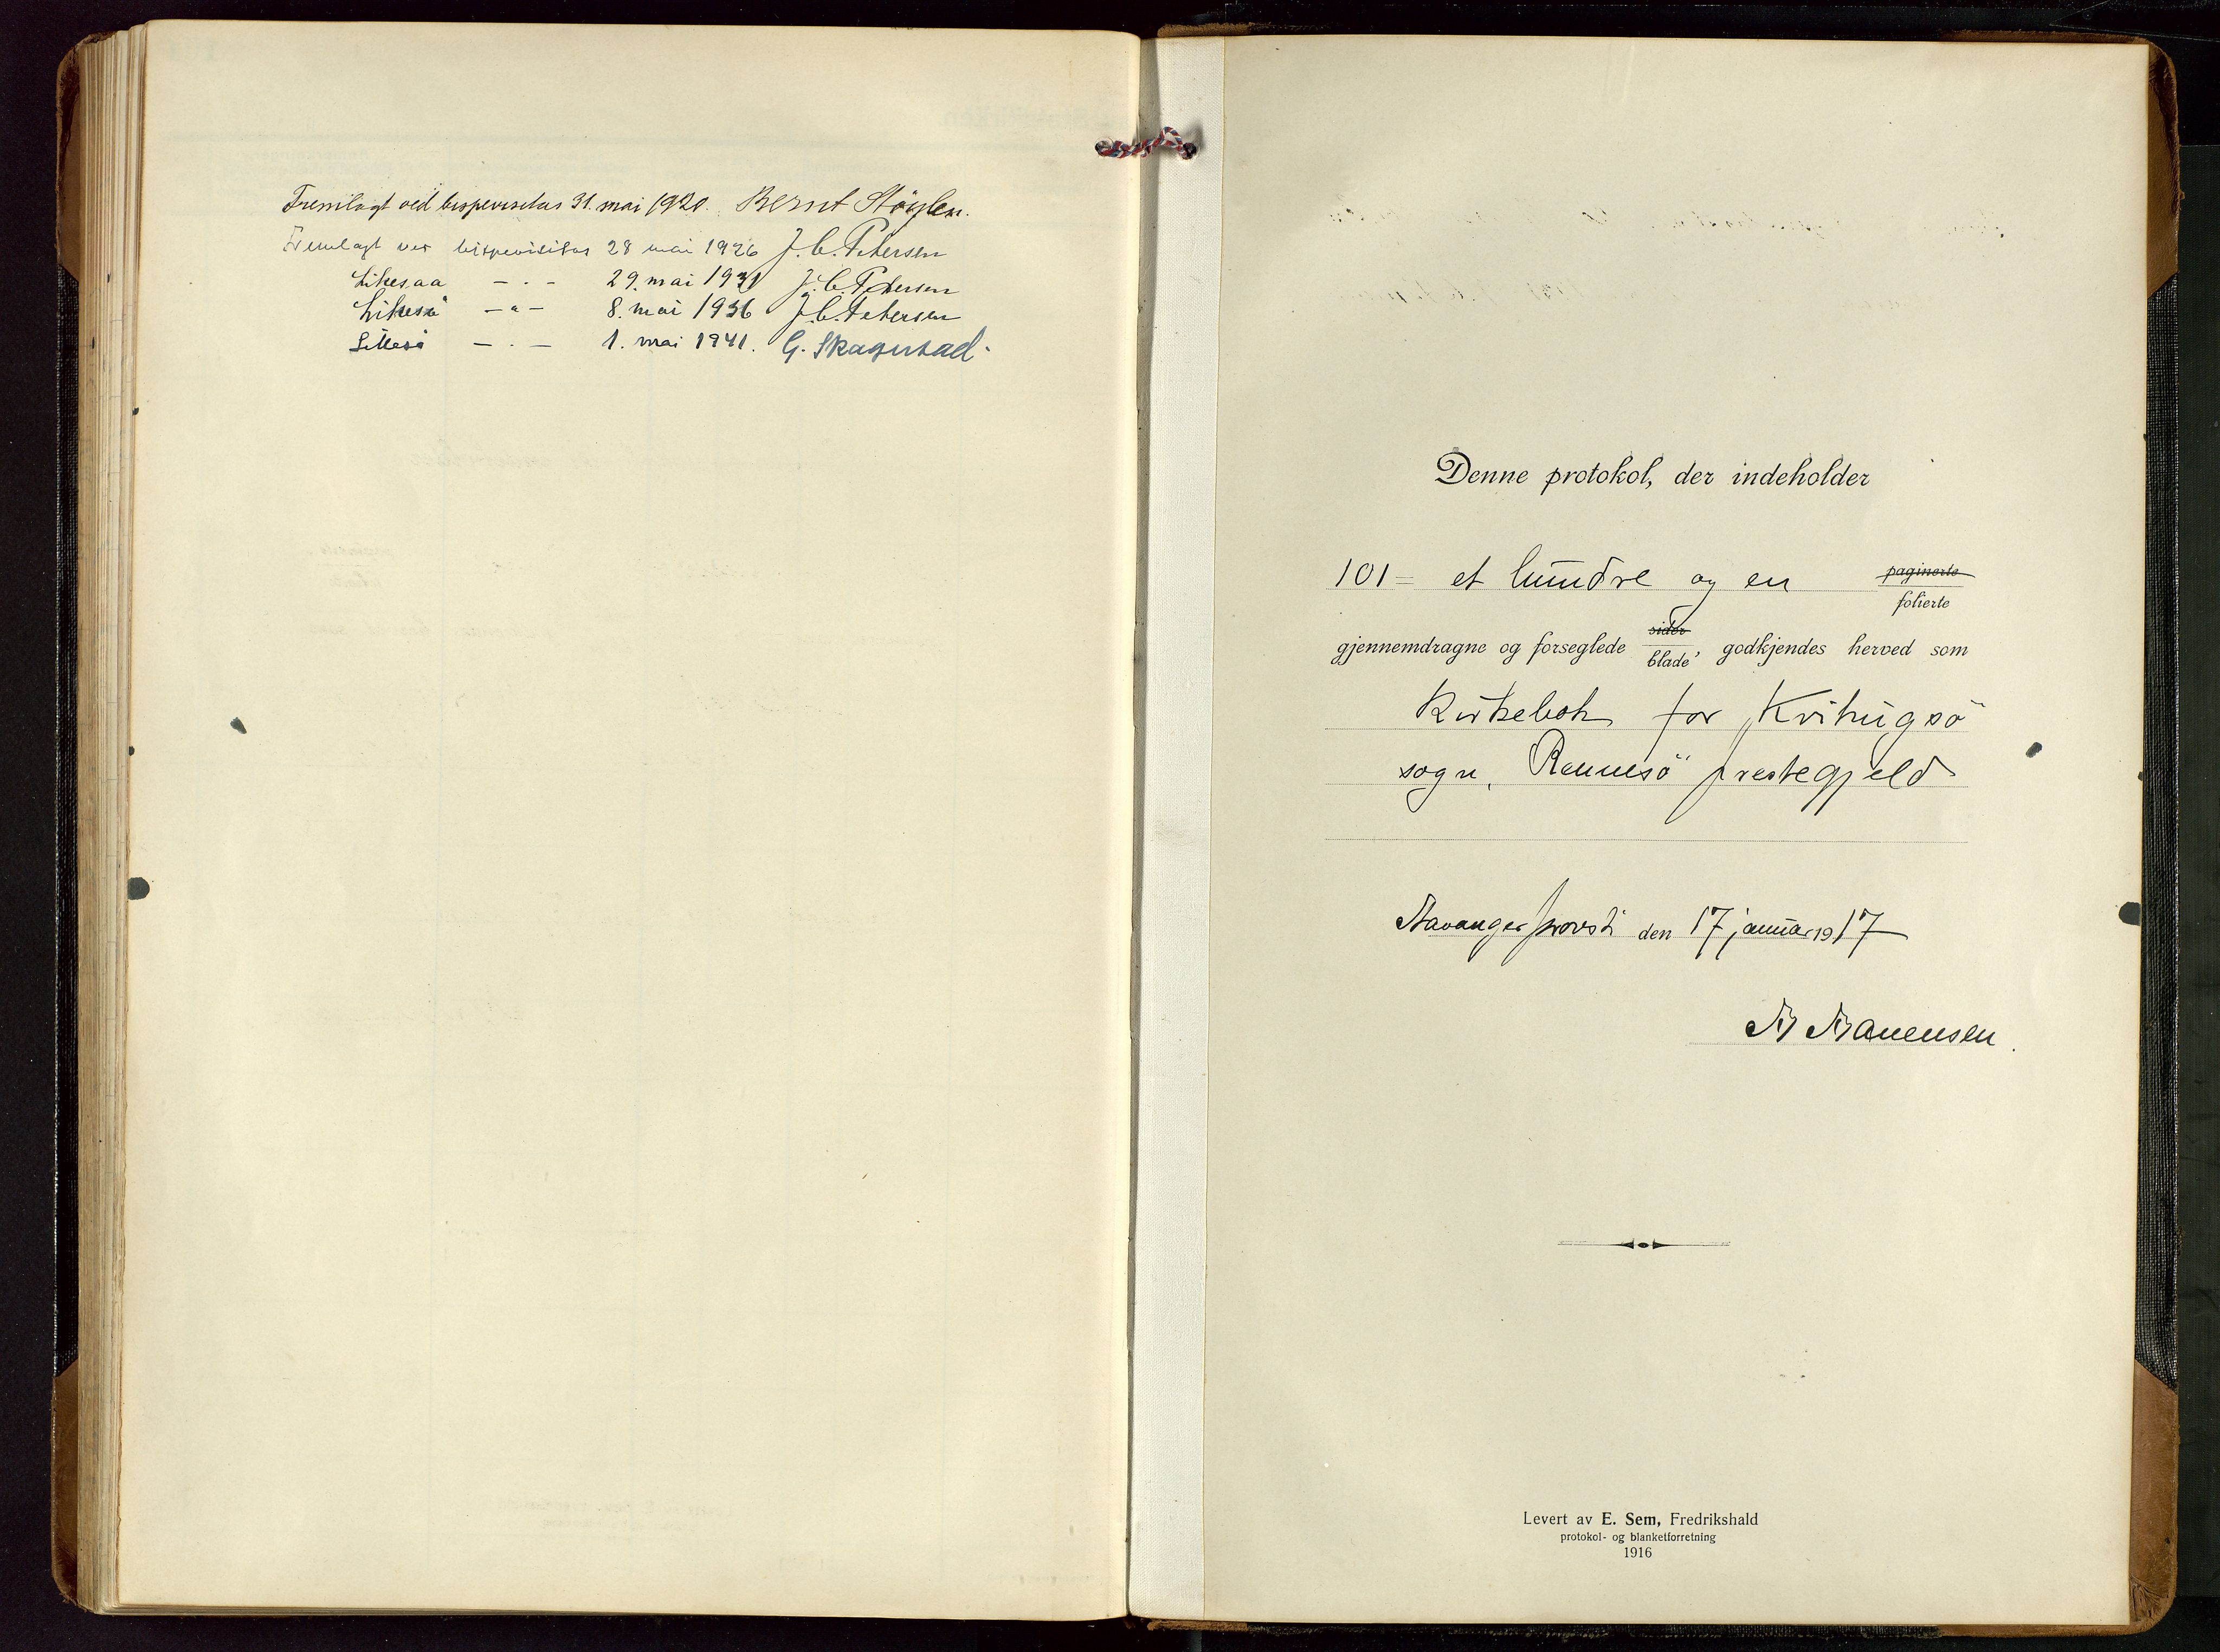 Fremlagt ved bispevisitas 31. mai 1920. Bernt Støylen.
Fremlagt ved bispevisitas 28 mai 1926 J. C. Petersen
Likesaa — . — 29. mai 1931 J. C. Petersen
Likeså — " — 8. mai 1936 J. C. Petersen
Likeså — . — 1. mai 1941. G. Skagestad.
Denne protokol, der indeholder
101 = et hundre og en paginerte
folierte
sider
gjennemdragne og forseglede blade, godkjendes herved som
Kirkebok for Kvitingsö
sogn, Rennesö prestegjeld
Stavanger provsti den 17 januar 1917
Levert av E. Sem, Fredrikshald
protokol- og blanketforretning
1916